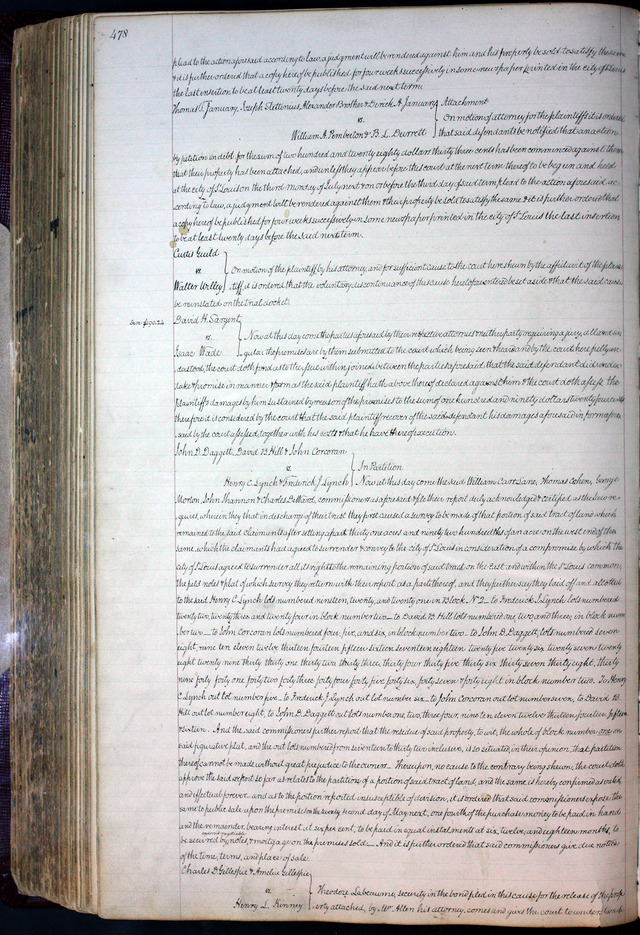 478
plead to the action aforesaid according to law a judgment will be rendered against him and his property be sold to satisfy the same
& it is further ordered that a copy hereof be published for four weeks successively in some newspaper printed in the city of St Louis
the last insertion to be at least twenty days before the said next term.
Thomas T. January, Joseph Stettinius, Alexander Brother & Derick A January Attachment
vs. On motion of attorney for the plaintiffs it is ordered
William A. Pemberton & B. L. Durrett that said defendants be notified that an action
by petition in debt for the sum of two hundred and twenty eighty dollars thirty three cents has been commenced against them
that their property has been attached, and unless they appear before this court at the next term thereof to be begun and held
at the city of St Louis on the third Monday of July next & on or before the third day of said term plead to the action aforesaid ac-
cording to law, a judgment will be rendered against them & their property be sold to satisfy the same & it is further ordered that
a copy hereof be published for four weeks successively in some newspaper printed in the city of St Louis the last insertion
to be at least twenty days before the said next term.
Curtis Guild
vs. On motion of the plaintiff by his attorney, and for sufficient cause to the court here shown by the affidavit of the plain
Walter Willey tiff, it is ordered that the voluntary discontinuance of this cause heretofore entered be set aside & that the said cause
be reinstated on the trial docket.
David H. Sargent
vs. Now at this day come the parties aforesaid by their respective attornies & neither party requiring a jury, all and sin
Isaac Wade gular the premises are by them submitted to the court which being seen & heard and by the court here fully un-
derstood, the court doth find as to the issue within joined between the parties aforesaid that the said defendant did under
take & promise in manner & form as the said plaintiff hath above thereof declared against him & the court doth assess the
plaintiff's damages by him sustained by reason of the premises to the sum of one hundred and ninety dollars twenty four cents
therefore it is considered by the court that the said plaintiff recover of the said defendant his damages aforesaid in form afore
said by the court assessed, together with his costs & that he have thereof execution.
John D. Daggett, David B. Hill & John Corcoran
vs. In Partition
Henry C. Lynch & Frederick J. Lynch Now at this day come the said William Carr Lane, Thomas Cohen, George
Morton John Shannon & Charles Collard, commissioners as aforesaid & file their report duly acknowledged & certified as the law re-
quires, wherein they that in discharge of their trust they first caused a survey to be made of that portion of said tract of land which
remained to the said claimants after setting apart thirty one acres and ninety two hundredths of an acre on the west end of the
same, which the claimants had agreed to surrender & convey to the city of St Louis in consideration of a compromise by which the
city of St Louis agreed to surrender all its right to the remaining portion of said tract on the east and within the St Louis common,
the field notes & plat of which survey they return with their report as a part thereof, and they further say they laid off and allotted
to the said Henry C Lynch lots numbered nineteen, twenty, and twenty one in Block No 2_ to Frederick J. Lynch lots numbered
twenty two, twenty three and twenty four in block number two_ to David B. Hill lots numbered one, two, and three, in block num
ber two_ to John Corcoran lots numbered four, five, and six, in block number two_ to John D. Daggett, lots numbered seven
eight, nine ten eleven twelve thirteen fourteen fifteen sixteen seventeen eighteen twenty five twenty six twenty seven twenty
eight twenty nine thirty thirty one thirty two thirty three, thirty four thirty five thirty six thirty seven thirty eight, thirty
nine forty forty one forty two forty three forty four forty five forty six, forty seven & forty eight in block number two. To Henry
C Lynch out lot number five_ to Frederick J Lynch out lot number six_ to John Corcoran out lot number seven, to David B.
Hill out lot number eight, to John D. Daggett out lots number one, two, three four, nine ten eleven twelve thirteen fourteen fifteen
& sixteen. And the said commissioners further report that the residue of said property, to wit, the whole of block number one on
said figurative plat, and the out lots numbered from seventeen to thirty two inclusive, is so situated, in their opinion, that partition
thereof cannot be made without great prejudice to the owners. Thereupon, no cause to the contrary being shown; the court doth
approve the said report so far as relates to the partition of a portion of said tract of land, and the same is hereby confirmed as valid
and effectual forever and as to the portion reported insusceptible of division, it is ordered that said commissioners expose the
same to public sale upon the premises on the twenty second day of May next, one fourth of the purchase money to be paid in hand
and the remainder bearing interest at six per cent, to be paid in equal instalments at six, twelve, and eighteen months, to
be secured by notes, & mortgage on the premises sold._ And it is further ordered that said commissioners give due notice
of the time, terms, and place of sale.
Charles D. Gillespie & Amelia Gillespie
vs. Theodore Labeaume, security in the bond filed in this cause for the release of the prop
Henry L. Kinney erty attached, by Mr. Allen his attorney, comes and gives the court to understand